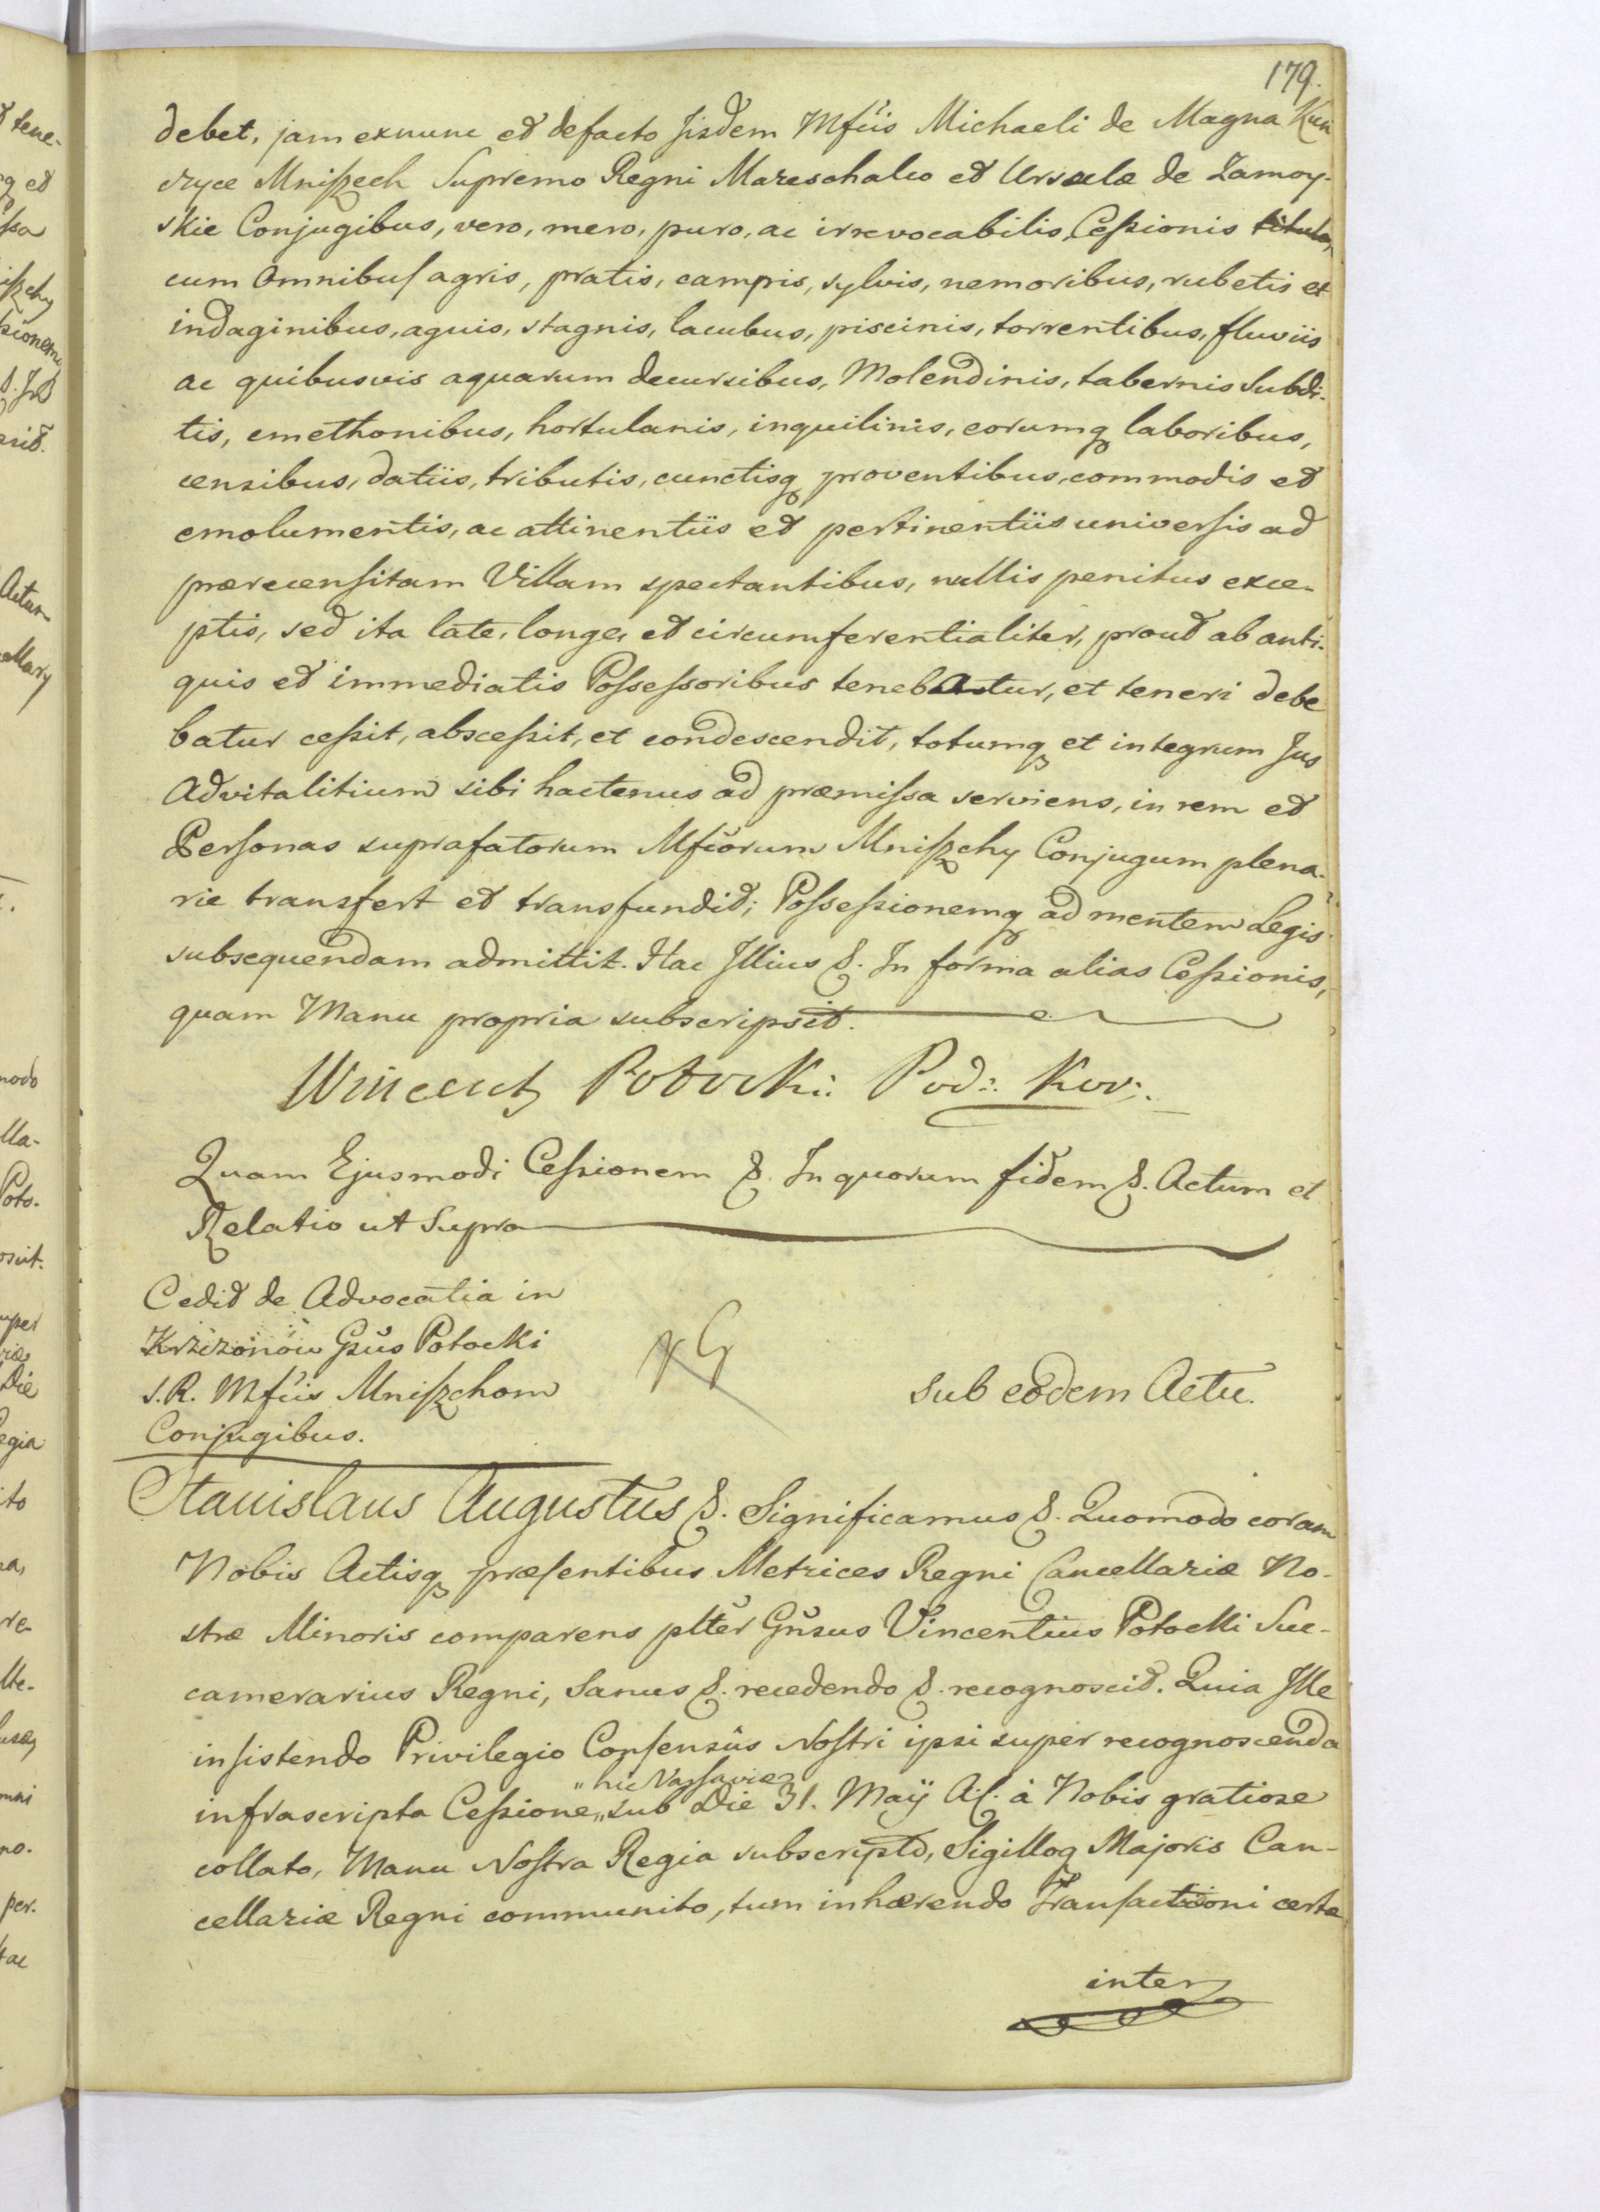 179.
debet, jam exnunc et defacto Jisdem Mfcis Michaeli de Magna Kun
czyce Mniszech Supremo Regni Mareschalco et Ursulæ de Zamoy-
skie Conjugibus, vero, mero, puro, ac irrevocabilis Cessionis titulo,
cum Omnibus agris, pratis, campis, sylvis, nemoribus, rubetis et
indaginibus, aquis, stagnis, lacubus, piscinis, torrentibus, fluviis
ac quibusvis aquarum decursibus, Molendinis, tabernis Subdi-
tis, cmethonibus, hortulanis, inquilinis, eorumq laboribus,
censibus, datiis, tributis, cunctisq proventibus, commodis et
emolumentis, ac attinentiis et pertinentiis universis ad
prærecensitam Villam spectantibus, nullis penitus exce-
ptis, sed ita late, longe, et circumferentialiter, prout ab anti-
quis et immediatis Possessoribus tenebatur, et teneri debe
batur cessit, abscessit, et condescendit, totumq et integrum Jus
Advitalitium sibi hactenus ad præmissa serviens, in rem et
Personas suprafatorum Mfcorum Mniszchy Conjugum plena-
rie transfert et transfundit; Possessionemq ad mentem Legis
subsequendam admittit. Hac Illius &. In forma alias Cessionis,
quam Manu propria subscripsit.
Wincenty Potocki: Pod: Kor:
Quam Ejusmodi Cessionem &. In quorum fidem &. Actum et
Relatio ut Supra
Cedit de Advocatia in
Krzizonow Gsus Potocki
S.R. Mfcis Mniszchom
Conjugibus.
sub eodem Actu.
Stanislaus Augustus &. Significamus &. Quomodo coram
Nobis Actisq præsentibus Metrices Regni Cancellariæ No-
stræ Minoris comparens plter Gnsus Vincentius Potocki Suc-
camerarius Regni, Sanus &. recedendo &. recognoscit. Quia Ille
insistendo Privilegio Consensûs Nostri ipsi super recognoscenda
„hic Varsaviæ
infrascripta Cessione „sub Die 31. Maÿ A.c. à Nobis gratiose
collato, Manu Nostra Regia subscripto, Sigilloq Majoris Can-
cellariæ Regni communito, tum inhærendo Transactioni certæ
inter